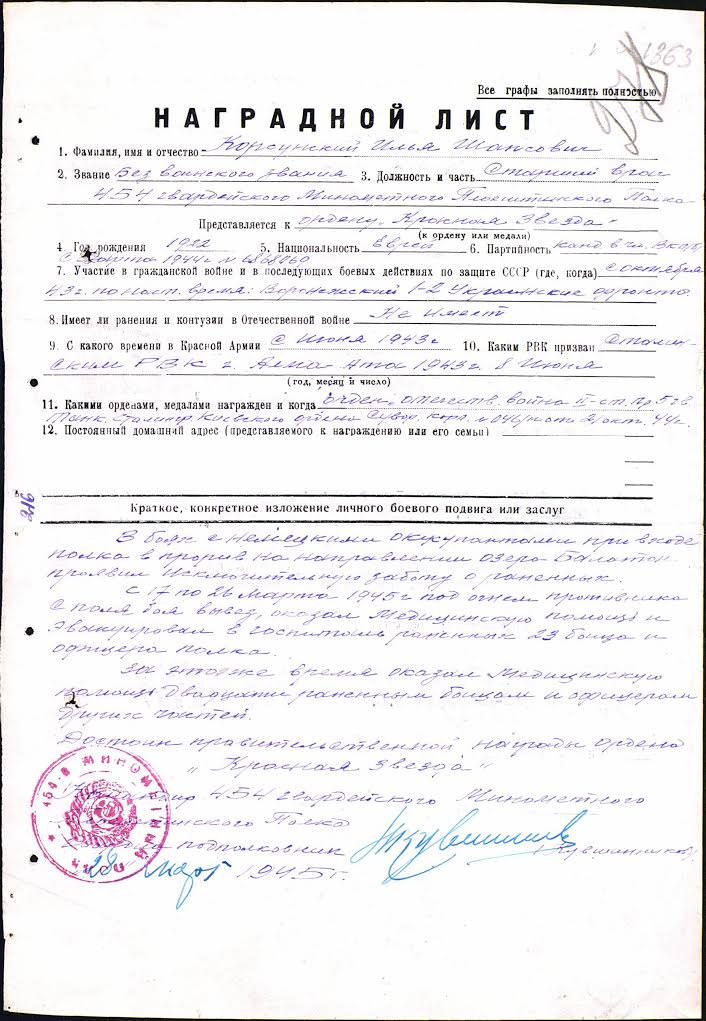 1363
Все графы заполнять полностью
НАГРАДНОЙ ЛИСТ
1. Фамилия, имя и отчество Корсунский Илья Шансович
2. Звание Без воинского звания 3. Должность и часть Старший врач
454 гвардейского Минометного Полка
Представляется к ордену "Красная Звезда"
(к ордену или медали)
4. Год рождения 1922 5. Национальность Еврей 6. Партийность канд в чл. ВКП/б/
с Марта 1944 г. № 6868060
7. Участие в гражданской войне и в последующих боевых действиях по защите СССР (где, когда) с октября
43 г. по наст. время. Воронежский 1-2 Украинские фронта
8. Имеет ли ранения и контузии в Отечественной войне Не имеет
9. С какого времени в Красной Армии с Июня 1943 г 10. Каким РВК призван Сталин-
ским РВК г. Алма Ата 1943 г. 8 Июня
(год, месяц и число)
11. Какими орденами, медалями награжден и когда орден. отечеств. война II-ст. пр. 5 гв
Танк. Сталингр. Киевского ордена Сувор. корп. № 046/н от 21 окт. 44 г.
12. Постоянный домашний адрес (представляемого к награждению или его семьи)
Краткое, конкретное изложение личного боевого подвига или заслуг
В боях с немецкими оккупантами при входе
полка в прорыв на направлении озеро Балатон
проявил исключительную заботу о раненных.
С 17 по 26 Марта 1945 г под огнем противника
с поля боя вывез, оказал Медицинскую помощь и
эвакуировал в госпиталь раненных 23 бойца и
офицера полка.
За этоже время оказал Медицинскую
помощь двадцати раненным бойцам и офицерам
других частей.
Достоин правительственной награды ордена
"Красная Звезда"
454 гвардейского Минометного
Полка
подполковник /Кувшинников/
28 март 1945 г.
454-Й МИНОМЕТНЫЙ ПОЛК